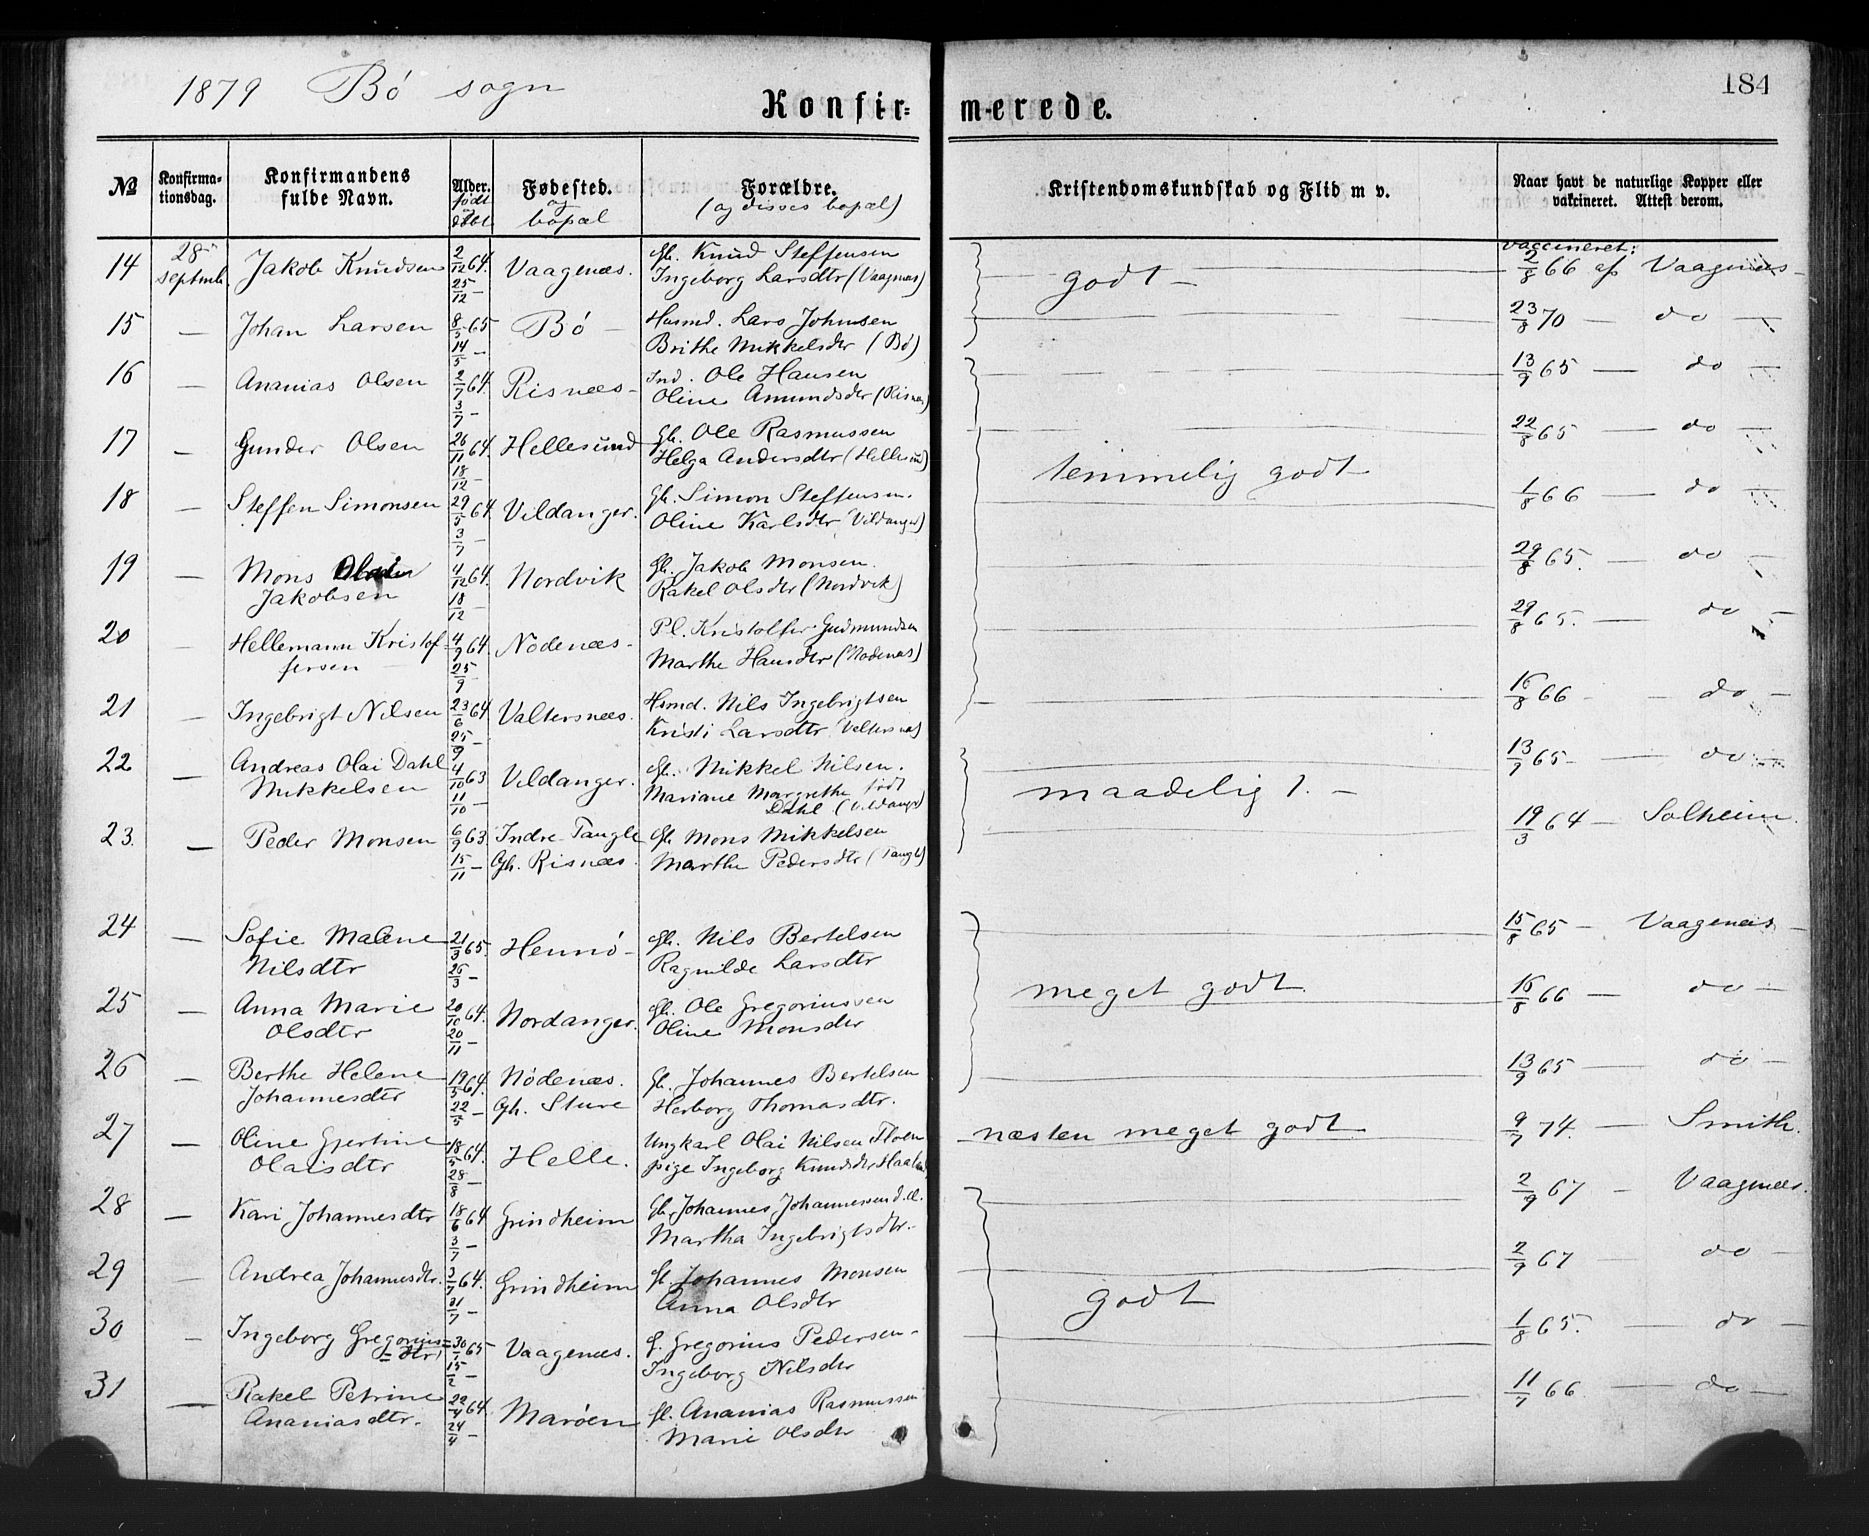 1879 Bö sogn
184
Konfir= merede.
№ Konfirma- tionsdag. Konfirmandens fulde Navn. Alder. født døbt Fødested. og bopæl Forældre. (og disses bopæl) Kristendomskundskab og Flid m v. Naar havt de naturlige Kopper eller vakcineret. Attest derom.
vaccineret:
14 28 Septmb. Jakob Knudsen 2/12 64. Vaagenæs. Gb. Knud Steffensen godt – 2/8 66 af Vaagenæs –
25/12 – Ingeborg Larsdtr (Vaagnæs)
15 – Johan Larsen 8/5 65 Bö – Husmd. Lars Johnsen 23/8 70 – do –
14/5 – Brithe Mikkelsdtr (Bö)
16 – Ananias Olsen 2/7 64. Risnæs – Ind. Ole Hansen 13/9 65 – do –
3/7 – Oline Amundsdtr (Risnæs)
17 – Gunder Olsen 26/11 64. Hellesund Gb. Ole Rasmussen 22/8 65 – do –
18/12 – Helga Andersdtr (Hellesund)
temmelig godt
18 – Steffen Simonsen 29/5 64 Vildanger. Gb. Simon Steffensen. 1/8 66 – do –
3/7 – Oline Karlsdtr Vildanger)
19 – Mons 4/12 64. Nordvik Gb. Jakob Monsen. 29/8 65. – do –
Jakobsen 18/12 – Rakel Olsdtr (Nordvik)
20 – Hellemann Kristof- 4/9 64. Nödenæs – Pl. Kristoffer Gudmundsen 29/8 65. – do –
fersen 25/9 – Marthe Hansdtr (Nödenæs)
21 – Ingebrigt Nilsen 23/6 64 Valtersnæs. Hsmd. Nils Ingebrigtsen 16/8 66 – – do –
25/9 – Kristi Larsdtr Valtersnæs)
22 – Andreas Olai Dahl 4/10 63 Vildanger. Gb. Mikkel Nilsen. maadelig 1. – 13/7 65 – do –
Mikkelsen 11/10 – Mariane Margrethe født
Dahl (Vildanger)
23. – Peder Monsen 6/9 63. Indre Tangle Gb. Mons Mikkelsen 19/3 64 – Solheim.
15/11 – Gh. Risnæs. Marthe Pedersdtr (Tangle)
24 – Sofie Malene 21/3 65. Hennö – Gb. Nils Bertelsen 15/8 65 – Vaagenæs –
Nilsdtr 26/3 – Ragnilde Larsdtr
meget godt.
25 – Anna Marie 20/10 64. Nordanger. Gb. Ole Gregoriussen 16/8 66 – do –
Olsdtr 20/11 – Oline Monsdtr
26 – Berthe Helene 19/5 64. Nödenæs. Gb. Johannes Bertelsen 13/9 65 – do –
Johannesdtr 22/5 – Gh. Sture Herborg Thomasdtr.
27 – Oline Gjertine 18/5 64. Helle. Ungkarl Olai Nilsen Floen næsten meget godt 9/7 74. – Smith.
Olaisdtr 28/8 – pige Ingeborg Knudsdtr Haaland
28 – Kari Johannesdtr 18/6 64 Grindheim Gb. Johannes Johannessen d. æ. 2/9 67 – Vaagnæs.
3/7 – Martha Ingebrigtsdtr.
29 – Andrea Johannesdtr. 3/7 64. Grindheim Gb. Johannes Monsen 2/9 67 – do –
31/7 – Anna Olsdtr
godt
30 – Ingeborg Gregorius= 30/1 65 Vaagenæs. G. Gregorius Pedersen – 1/8 65. – do –
dtr 15/2 – Ingeborg Nilsdtr
31 – Rakel Petrine 22/4 64. Maröen Gb. Ananias Rasmussen 11/7 66. – do –
Ananiasdtr. 24/4 – Marie Olsdtr